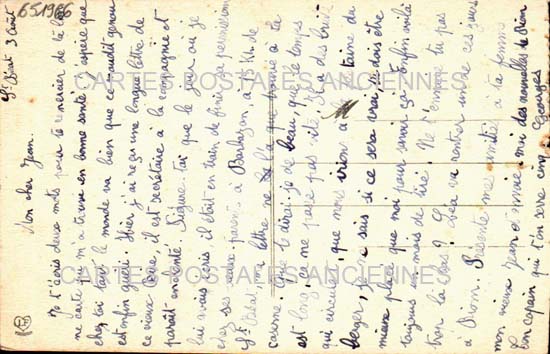 651966
St Privat 3 Août
Mon cher Jean.
Je t'écris deux mots pour te remercier de ta
ne carte qui m'a trouvé en bonne santé. J'espère que
chez toi tout le monde va bien que ce maudit genou
est enfin guéri. Hier j'ai reçu une longue lettre de
ce vieux il est secrétaire à la compagnie et
paraît enchanté. Figure-toi que le jour où je
lui avais écris il était en train de finir sa permission
chez ses vieux parents à Barbazan à 15 Kl. de
St Béat, ma lettre ne l'a que trouvé à la
caserne. Que te dirai-je de beau, que le temps
est long, ça ne passe pas vite. Il y a des bruits
qui circulent, que nous irions à la
je ne sais si ce sera vrai, tu dois être
mieux placé que moi pour savoir ça. Enfin voilà
toujours un mois de tiré. Ne t'ennuie tu pas
trop là bas? Léa va rentrer un de ces jours
à Riom. Présente mes amitiés à ta femme
mon vieux Jean envoie moi des nouvelles de Riom
bon copain qui t'en serre cinq. Georges
CARTES POSTALES ANCIENNES
CARTES POSTALES ANCIENNES